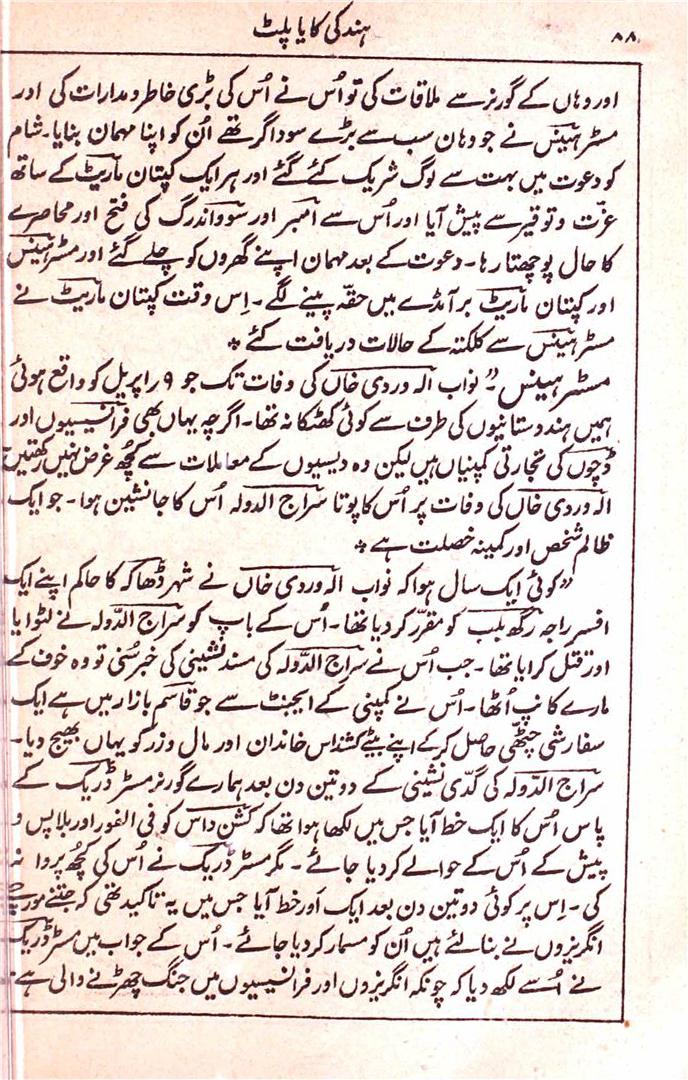 ۸۸
ہند کی کایا پلٹ
اور وہاں کے گورنر سے ملاقات کی تو اُس نے اُس کی بڑی خاطر و مدارات کی اور
مسٹر ہینس نے جو وہان سب سے بڑے سوداگر تھے اُن کو اپنا مہمان بنایا۔ شام
کو دعوت میں بہت سے لوگ شریک کئے گئے اور ہر ایک کپتان ماریٹ کے ساتھ
عزت و توقیر سے پیش آیا اور اُس سے امبر اور سوواندرگ کی فتح اور محاصرے
کا حال پوچھتا رہا۔ دعوت کے بعد مہمان اپنے گھروں کو چلے گئے اور مسٹر ہینس
اور کپتان ماریٹ برآمدے میں حقّہ پینے لگے۔ اِس وقت کپتان ماریٹ نے
مسٹر ہینس سے کلکتہ کے حالات دریافت کئے ٭
مسٹر ہینس۔ ”نواب الہ وردی خاں کی وفات تک جو ۹ راپریل کو واقع ہوئی
ہمیں ہندوستانیوں کی طرف سے کوئی کھٹکا نہ تھا۔ اگرچہ یہاں بھی فرانسیسیوں اور
ڈچوں کی تجارتی کمپنیاں ہیں لیکن وہ دیسیوں کے معاملات سے کُچھ غرض نہیں رکھتیں
الہ وردی خاں کی وفات پر اُس کا پوتا سراج الدولہ اُس کا جانشین ہوا۔ جو ایک
ظالم شخص اور کمینہ خصلت ہے ٭
”کوئی ایک سال ہوا کہ نواب الہ وردی خاں نے شہر ڈھاکہ کا حاکم اپنے ایک
افسر راجہ رگھ بلب کو مقرّر کر دیا تھا۔ اُس کے باپ کو سراج الدّولہ نے لٹوایا
اور قتل کرایا تھا۔ جب اُس نے سراج الدّولہ کی مسند نشینی کی خبر سُنی تو وہ خوف کے
مارے کانپ اُٹھا۔ اُس نے کمپنی کے ایجنٹ سے جو قاسم بازار میں ہے ایک
سفارشی چٹھّی حاصل کر کے اپنے بیٹے کشنداس خاندان اور مال و زر کو یہاں بھیج دیا۔
سراج الدّولہ کی گدّی نشینی کے دو تین دن بعد ہمارے گورنر مسٹر ڈریک کے
پاس اُس کا ایک خط آیا جس میں لکھا ہوا تھا کہ کشن داس کو فی الفور اور بلا پس و
پیش کے اُس کے حوالے کر دیا جائے۔ مگر مسٹر ڈریک نے اُس کی کُچھ پروا نہ
کی۔ اِس پر کوئی دو تین دن بعد ایک اَور خط آیا جس میں یہ تاکید تھی کہ جتنے مورچے
انگریزوں نے بنا لئے ہیں اُن کو مسمار کر دیا جائے۔ اُس کے جواب میں مسٹر ڈریک
نے اُسے لکھ دیا کہ چونکہ انگریزوں اور فرانسیسیوں میں جنگ چھڑنے والی ہے